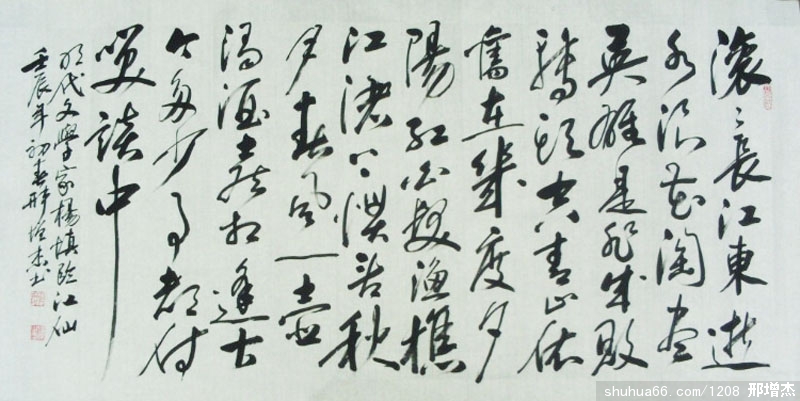 滚〻長江東逝
水浪花淘盡
英雄是非成敗
轉頭空青山依
舊在幾度夕
陽紅白髮漁樵
江渚上慣看秋
月春風一壺
濁酒喜相逢古
今多少事都付
笑談中
明代文學家楊慎臨江仙
壬辰年初春邢增杰书
shuhua66.com/1208 邢增杰